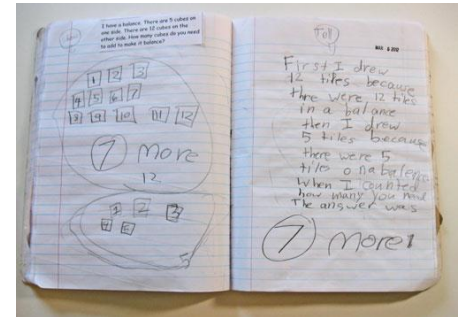 I have a balance. There are 5 cubes on
one side. There are 12 cubes on the
other side. How many cubes do you need
to add to make it balance?
1 2 3
4 5 6 7
8 9 10 11 12
7 more
12
1 2 3
4 5
5
Tell
First I drew
12 tiles because
thre were 12 tiles
in a balance
then I drew
5 tiles because
there were 5
tiles on a balence
When I counted
how many you need
The answer was
7 more